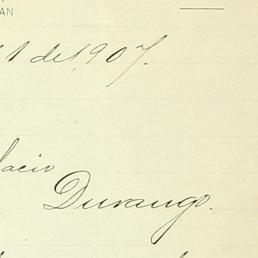 AN
1 de 1907.
lacio
Durango.